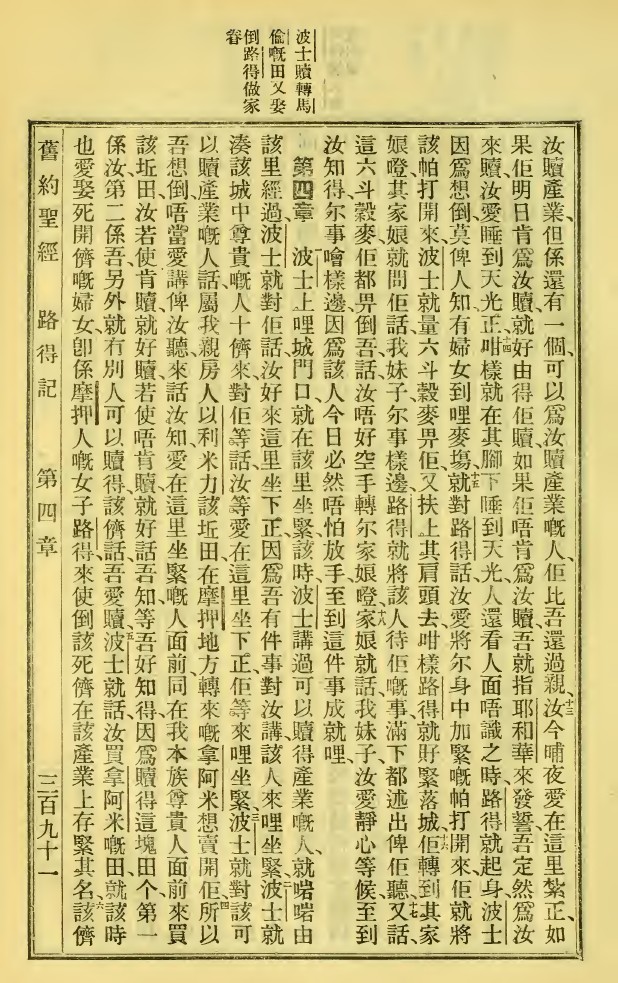 波士贖轉馬
倫嘅田又娶
倒路得做家
眷
汝贖產業、但係還有一個、可以爲汝贖產業嘅人、佢比吾還過親、十三汝今晡夜愛在這里紮正、如
果佢明日肯爲汝贖、就好由得佢贖、如果佢唔肯爲汝贖、吾就指耶和華來發誓、吾定然爲汝
來贖、汝愛睡到天光正、十四咁樣就在其腳下睡到天光、人還看人面唔識之時、路得就起身、波士
因爲想倒莫俾人知有婦女到哩麥塲、十五就對路得話、汝愛將尔身中加緊嘅帕打開來、佢就將
該帕打開來、波士就量六斗穀麥畀佢、又扶上其肩頭去、咁樣路得就䏲緊落城、十六佢轉到其家
娘嶝、其家娘就問佢話、我妹子、尔事樣邊、路得就將該人待佢嘅事、滿下都述出俾佢聽、十七又話、
這六斗穀麥、佢都畀倒吾、話汝唔好空手轉尔家娘嶝、十八家娘就話、我妹子、汝愛靜心等候、至到
汝知得尔事噲樣邊、因爲該人今日必然唔怕放手、至到這件事成就哩、
第四章 一波士上哩城門口、就在該里坐緊、該時波士講過可以贖得產業嘅人、就啱啱由
該里經過、波士就對佢話、汝好來這里坐下正、因爲吾有件事對汝講、該人來哩坐緊、二波士就
湊該城中尊貴嘅人十儕來、對佢等話、汝等愛在這里坐下正、佢等來哩坐緊、三波士就對該可
以贖產業嘅人話、屬我親房人以利米力該坵田、在摩押地方轉來嘅拿阿米想賣開佢、四所以
吾想倒唔當愛講俾汝聽、來話汝知、愛在這里坐緊嘅人面前、同在我本族尊貴人面前、來買
該坵田、汝若使肯贖、就好贖、若使唔肯贖、就好話吾知、等吾好知得、因爲贖得這塊田个、第一
係汝、第二係吾、另外就有別人可以贖得、該儕話、吾愛贖、五波士就話、汝買拿阿米嘅田、就該時
也愛娶死開儕嘅婦女、卽係摩押人嘅女子路得來、使倒該死儕在該產業上存緊其名、六該儕
舊約聖經 路得記 第四章 三百九十一